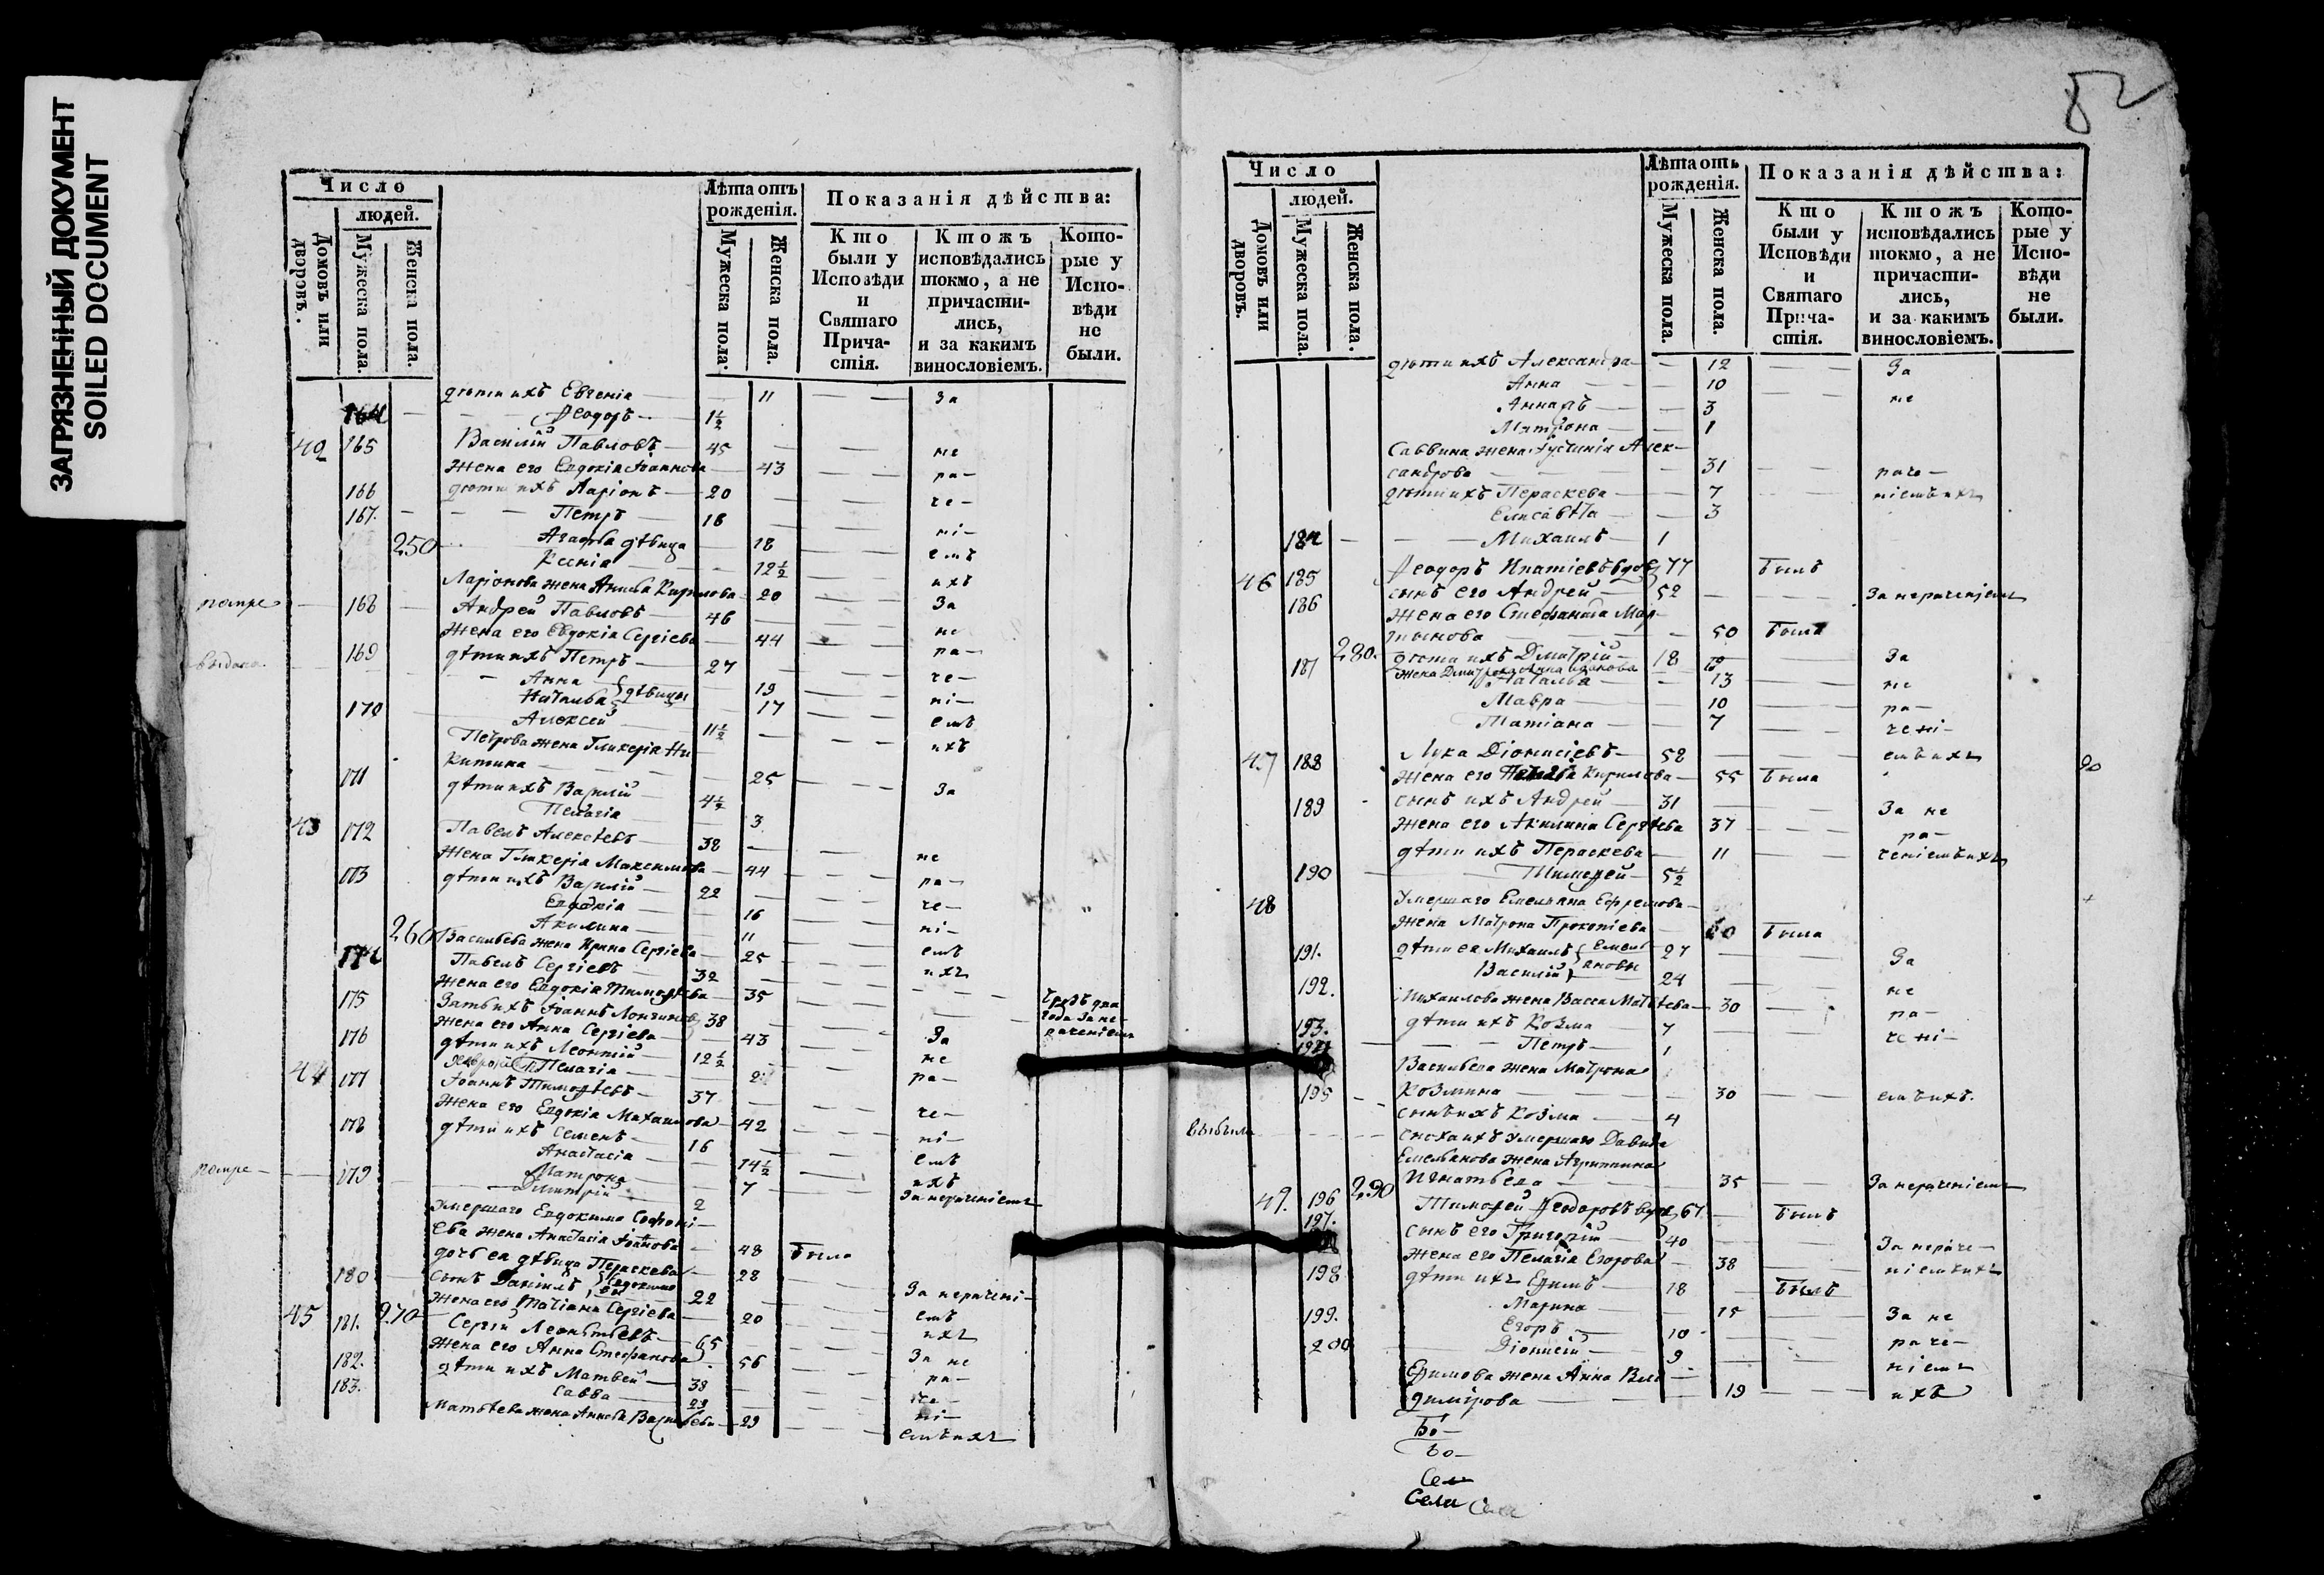 ЗАГРЯЗНЕННЫЙ ДОКУМЕНТ
SOILED DOCUMENT
82
Число
людей.
Домовъ или дворовъ.
Мужеска пола.
Женска пола.
Лѣта отъ рожденія.
Мужеска пола.
Женска пола.
Показанія дѣйства:
Кто были у Исповѣди и Святаго Причастія.
Ктожъ исповѣдались токмо, а не причастились, и за какимъ винословіемъ.
Которые у Исповѣди не были.
дѣти ихъ Евгенія — 11 — за
164 — Ѳеодоръ — 1½
42 165 Василій Павловъ — 45 — не
жена его Евдокія Іоаннова — 43 — ра-
166 дѣти ихъ Ларіонъ — 20 — че-
167. — Петръ — 18 — ні-
250 Агафья дѣвица — 18 — емъ
Ксенія — 12½ — ихъ
Ларіонова жена Кирилова — 20 — За
168 Андрей Павловъ — 46 — не
жена его Евдокія Сергіева — 44 — ра-
169 дѣти ихъ Петръ — 27 — че-
выдана Анна } дѣвицы 19 — ні-
Наталья } 17 — емъ
170 Алексей — 11½ — ихъ
Петрова жена Гликерія Ни-
китина — 25 — За
171 дѣти ихъ Василій — 4½
Пелагія — 3
43 172 Павелъ Алексѣевъ — 38 — не
жена Гликерія Максимова — 44 — ра-
173 дѣти ихъ Василій — 22 — че-
Евдокія — 16 — ні-
Акилина — 11 — емъ
260 Васильева жена Ирина Сергіева — 25 — ихъ
174 Павелъ Сергіевъ — 32
жена его Евдокія Тимоѳѣева — 35 — два года за не-раченіемъ
175 Зять ихъ Іоаннъ 38
жена его Анна Сергіева — 43 — За
176 дѣти ихъ Леонтій — 12½ — не
Пелагія — ра-
44 177 Іоаннъ Тимоѳѣевъ — 37 — че-
жена его Евдокія Михаилова — 42 — ні-
178 дѣти ихъ Семенъ — 16 — емъ
Анастасія — 14½ — ихъ
Матрона — 7 — За нерачениемъ
179 Димитрій — 2
умершаго Евдокима Софоні-
ева жена Анастасія Іоаннова — 48 была
дочь ея дѣвица Пераскева — 28
180 сынъ Даніилъ } Евдокимовы 22 — За нерачені-
жена его Татіана Сергіева — 20 — емъ
45 181. 270 Сергій Леонтьевъ — 65 — ихъ
жена его Анна Стефанова — 56 — За не
182. дѣти ихъ Матвей — 38 — ра-
183. Савва — 29 — че-
Матвѣева жена Васильева — 29 — ні-
емъ ихъ
Число
людей.
Домовъ или дворовъ.
Мужеска пола.
Женска пола.
Лѣта отъ рожденія.
Мужеска пола.
Женска пола.
Показанія дѣйства:
Кто были у Исповѣди и Святаго Причастія.
Ктожъ исповѣдались токмо, а не причастились, и за какимъ винословіемъ.
Которые у Исповѣди не были.
дѣти ихъ Александра — 12 — За
Анна — 10 — не
3
Матрона — 1
Саввина жена Устинія Алек-
сандрова — 31 — раче-
дѣти ихъ Пераскева — 7 — ніемъ ихъ
Елисавета — 3
184 — Михаилъ — 1
46 185 Ѳеодоръ Ипатіевъ вдовъ 77 былъ
186 сынъ его Андрей — 52 — За нераченіемъ
жена его Стефанида Мар-
тынова — 50 была
280. 187 дѣти ихъ Дмитрій — 18 — За
жена Дмитрова Анна Иванова 19
Наталья — 13 — не
Мавра — 10 — ра-
Татіана — 7 — чені-
47 188 Лука Діонисіевъ — 58 — емъ ихъ
жена его Кирилова — 55 была
189 сынъ ихъ Андрей — 31 — За не
жена его Акилина Сергѣева 37 — ра-
дѣти ихъ Пераскева — 11 — ченіемъ ихъ
190 — Тимоѳей — 5½
48 Умершаго Емельяна Ефремова —
жена Матрона Прокопіева — 60 была
191. дѣти ея Михаилъ } Емель- 27 — За
192. Василій } яновы 24 — не
Михаилова жена Васса Матвѣева — 30 — ра-
193. дѣти ихъ Козма — 7 — чені-
194 — Петръ — 1
Васильева жена Матрона
195 Козмина — 30 — емъ ихъ.
сынъ ихъ Козма — 4
выбыла сноха ихъ умершаго Давида
Емельянова жена Агриппина
Игнатьева — 35 — За нераченіемъ
49. 196 290 Тимоѳей Ѳеодоровъ вдовъ 67. былъ
197. сынъ его Григорій — 40 — За нераче-
жена его Пелагія Егорова — 38 — ніемъ ихъ
198 дѣти ихъ Ефимъ — 18 былъ
Марина — 15 — За не
199. Егоръ — 10 — раче-
200 Діонисій — 9 — ніемъ
Ефимова жена Анна Вла-
димірова — 19 — ихъ
Бо-
Бо-
Сел
Села Села